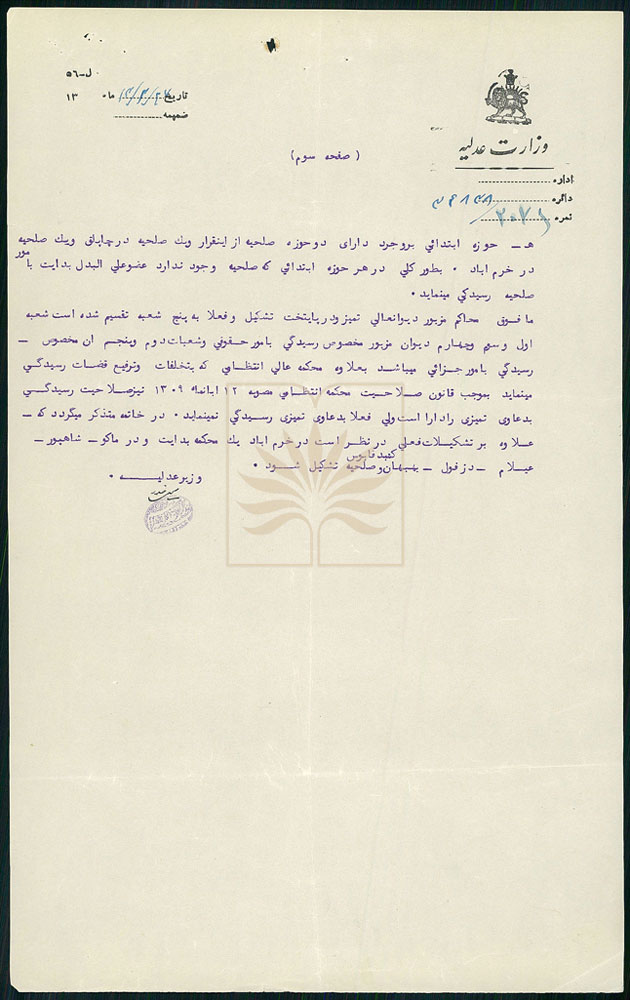 ل-٥٦
تاریخ ۱۳/۳/۲۷ ماه ۱۳
ضمیمه
وزارت عدلیه
اداره
دائره
نمره
( صفحه سوم )
هـ ـ حوزه ابتدائي بروجرد دارای دوحوزه صلحیه از اینقرار ویك صلحیه درچاپلق ویك صلحیه
در خرم اباد ۰ بطور کلي در هر حوزه ابتدائي که صلحیه وجود ندارد عضوعلي البدل بدایت بامور
صلحیه رسیدگي مینماید ۰
مافوق محاکم مزبور دیوانعالي تمیز ودرپایتخت تشکیل و فعلا به پنج شعبه تقسیم شده است شعبه
اول وسوم وچهارم دیوان مزبور مخصوص رسیدگي بامور حقوقي وشعبات دوم وپنجم ان مخصوص ـ
رسیدگي بامور جزائي میباشد بعلاوه محکمه عالي انتظامي که بتخلفات وترفیع قضات رسیدگي
مینماید بموجب قانون صلاحیت محکمه انتظامي مصوبه ۱۲ ابانماه ۱۳۰۹ نیزصلاحیت رسیدگي
بدعاوي تمیزي رادارا است ولي فعلا بدعاوي تمیزي رسیدگي نمینماید ۰ در خاتمه متذکر میگردد که ـ
علاوه بر تشکیلات فعلي در نظر است درخرم اباد یك محکمه بدایت و در ماکو ـ شاهپور ـ
گنبد قابوس
عیلام ـ دزفول ـ بهبهان و صلحیه تشکیل شود ۰
وزیرعدلیه ۰